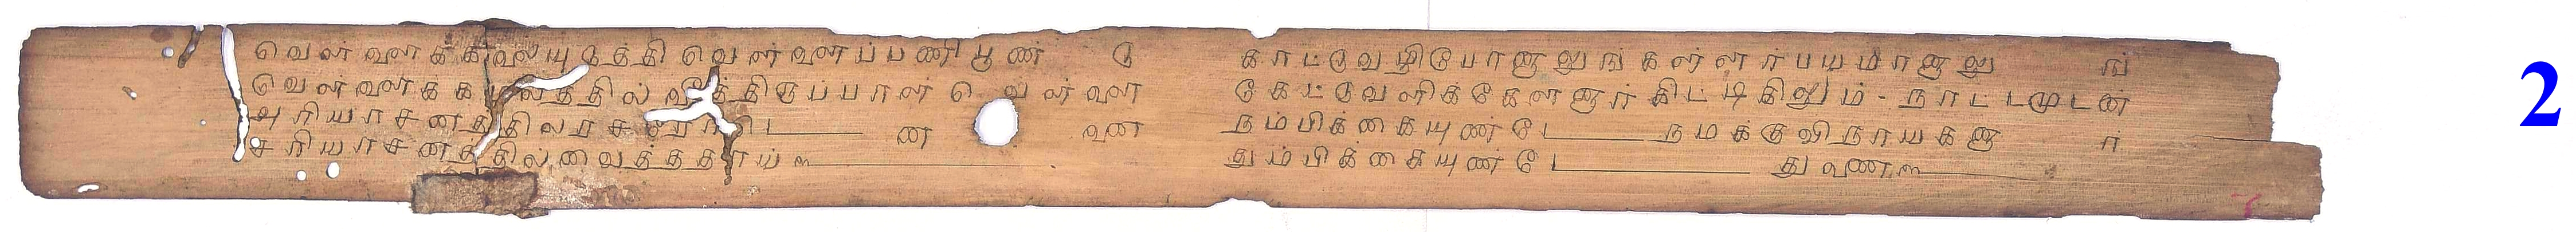 வெள்ளைக்கலையுடுத்தி வெள்ளைப்பணி பூண் டு
வெள்ளைக்கமலத்தில் வீத்திருப்பாள் வெள்ளை
அரியாசனத்திலரசரோ
சரியாசனத்தில்வைத்ததாய்
காட்டுவழிபோனாலுங் கள்ளர்பயமானாலு ங்
கிட்டிகிலும் - நாட்டமுடன்
நம்பிக்கையுண்டே நமக்குவிநாயகனா ர்
தும்பிக்கையுண்டே துணை
2